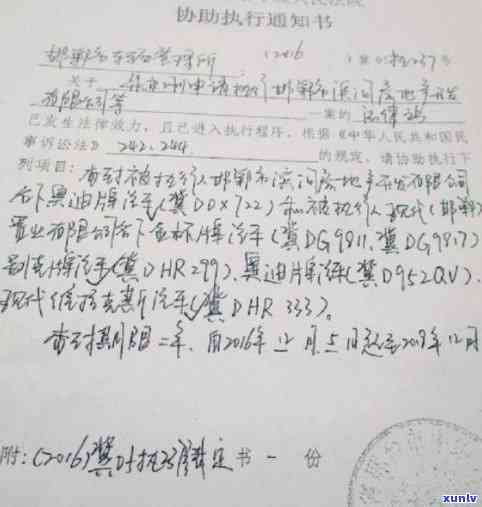 人民法院
协助执行通知书
(2016
关于 申请执行邯郸市滨河房地产开发
有限公司等 一案的
已发生法律效力，且已进入执行程序，根据《中华人民共和国民
事诉讼法》242、244 的规定，请协助执行下
列项目：查封被执行人邯郸市滨河房地产开发有限公司
名下奥迪牌汽车(冀D0X722)和被执行人现代(邯郸)
置业有限公司名下金杯牌汽车(冀DG9811、冀DG9817)
别克牌汽车(冀DHR299)、奥迪牌汽车(冀D952QV)、
现代维拉克斯汽车(冀DHR333)。
查封期限二年，自2016年12月5日起至 年12月
附：(2016)冀 执 裁定书一份
xunlv